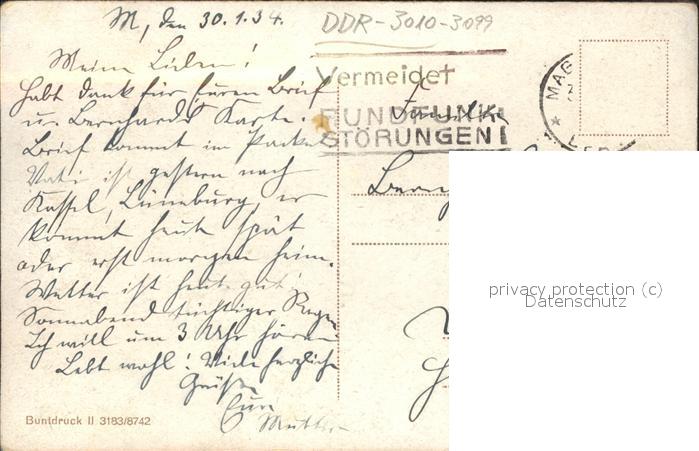 M, den 30.1.34.
DDR-3010-3099
Meine Lieben!
Habt Dank für Euren Brief
u. Bernhards Karte.
Brief kommt im Paket
Vati ist gestern nach
Kassel, Lüneburg, er
kommt heute spät
oder erst morgen heim.
Wetter ist heute gut!
Sonnabend tüchtiger Regen
Ich will um 3 Uhr hören
Lebt wohl! Viele herzliche
Grüße
Eure
Mutter
Vermeidet
RUNDFUNK
STÖRUNGEN!
MAG
Familie
privacy protection (c)
Datenschutz
Buntdruck II 3183/8742